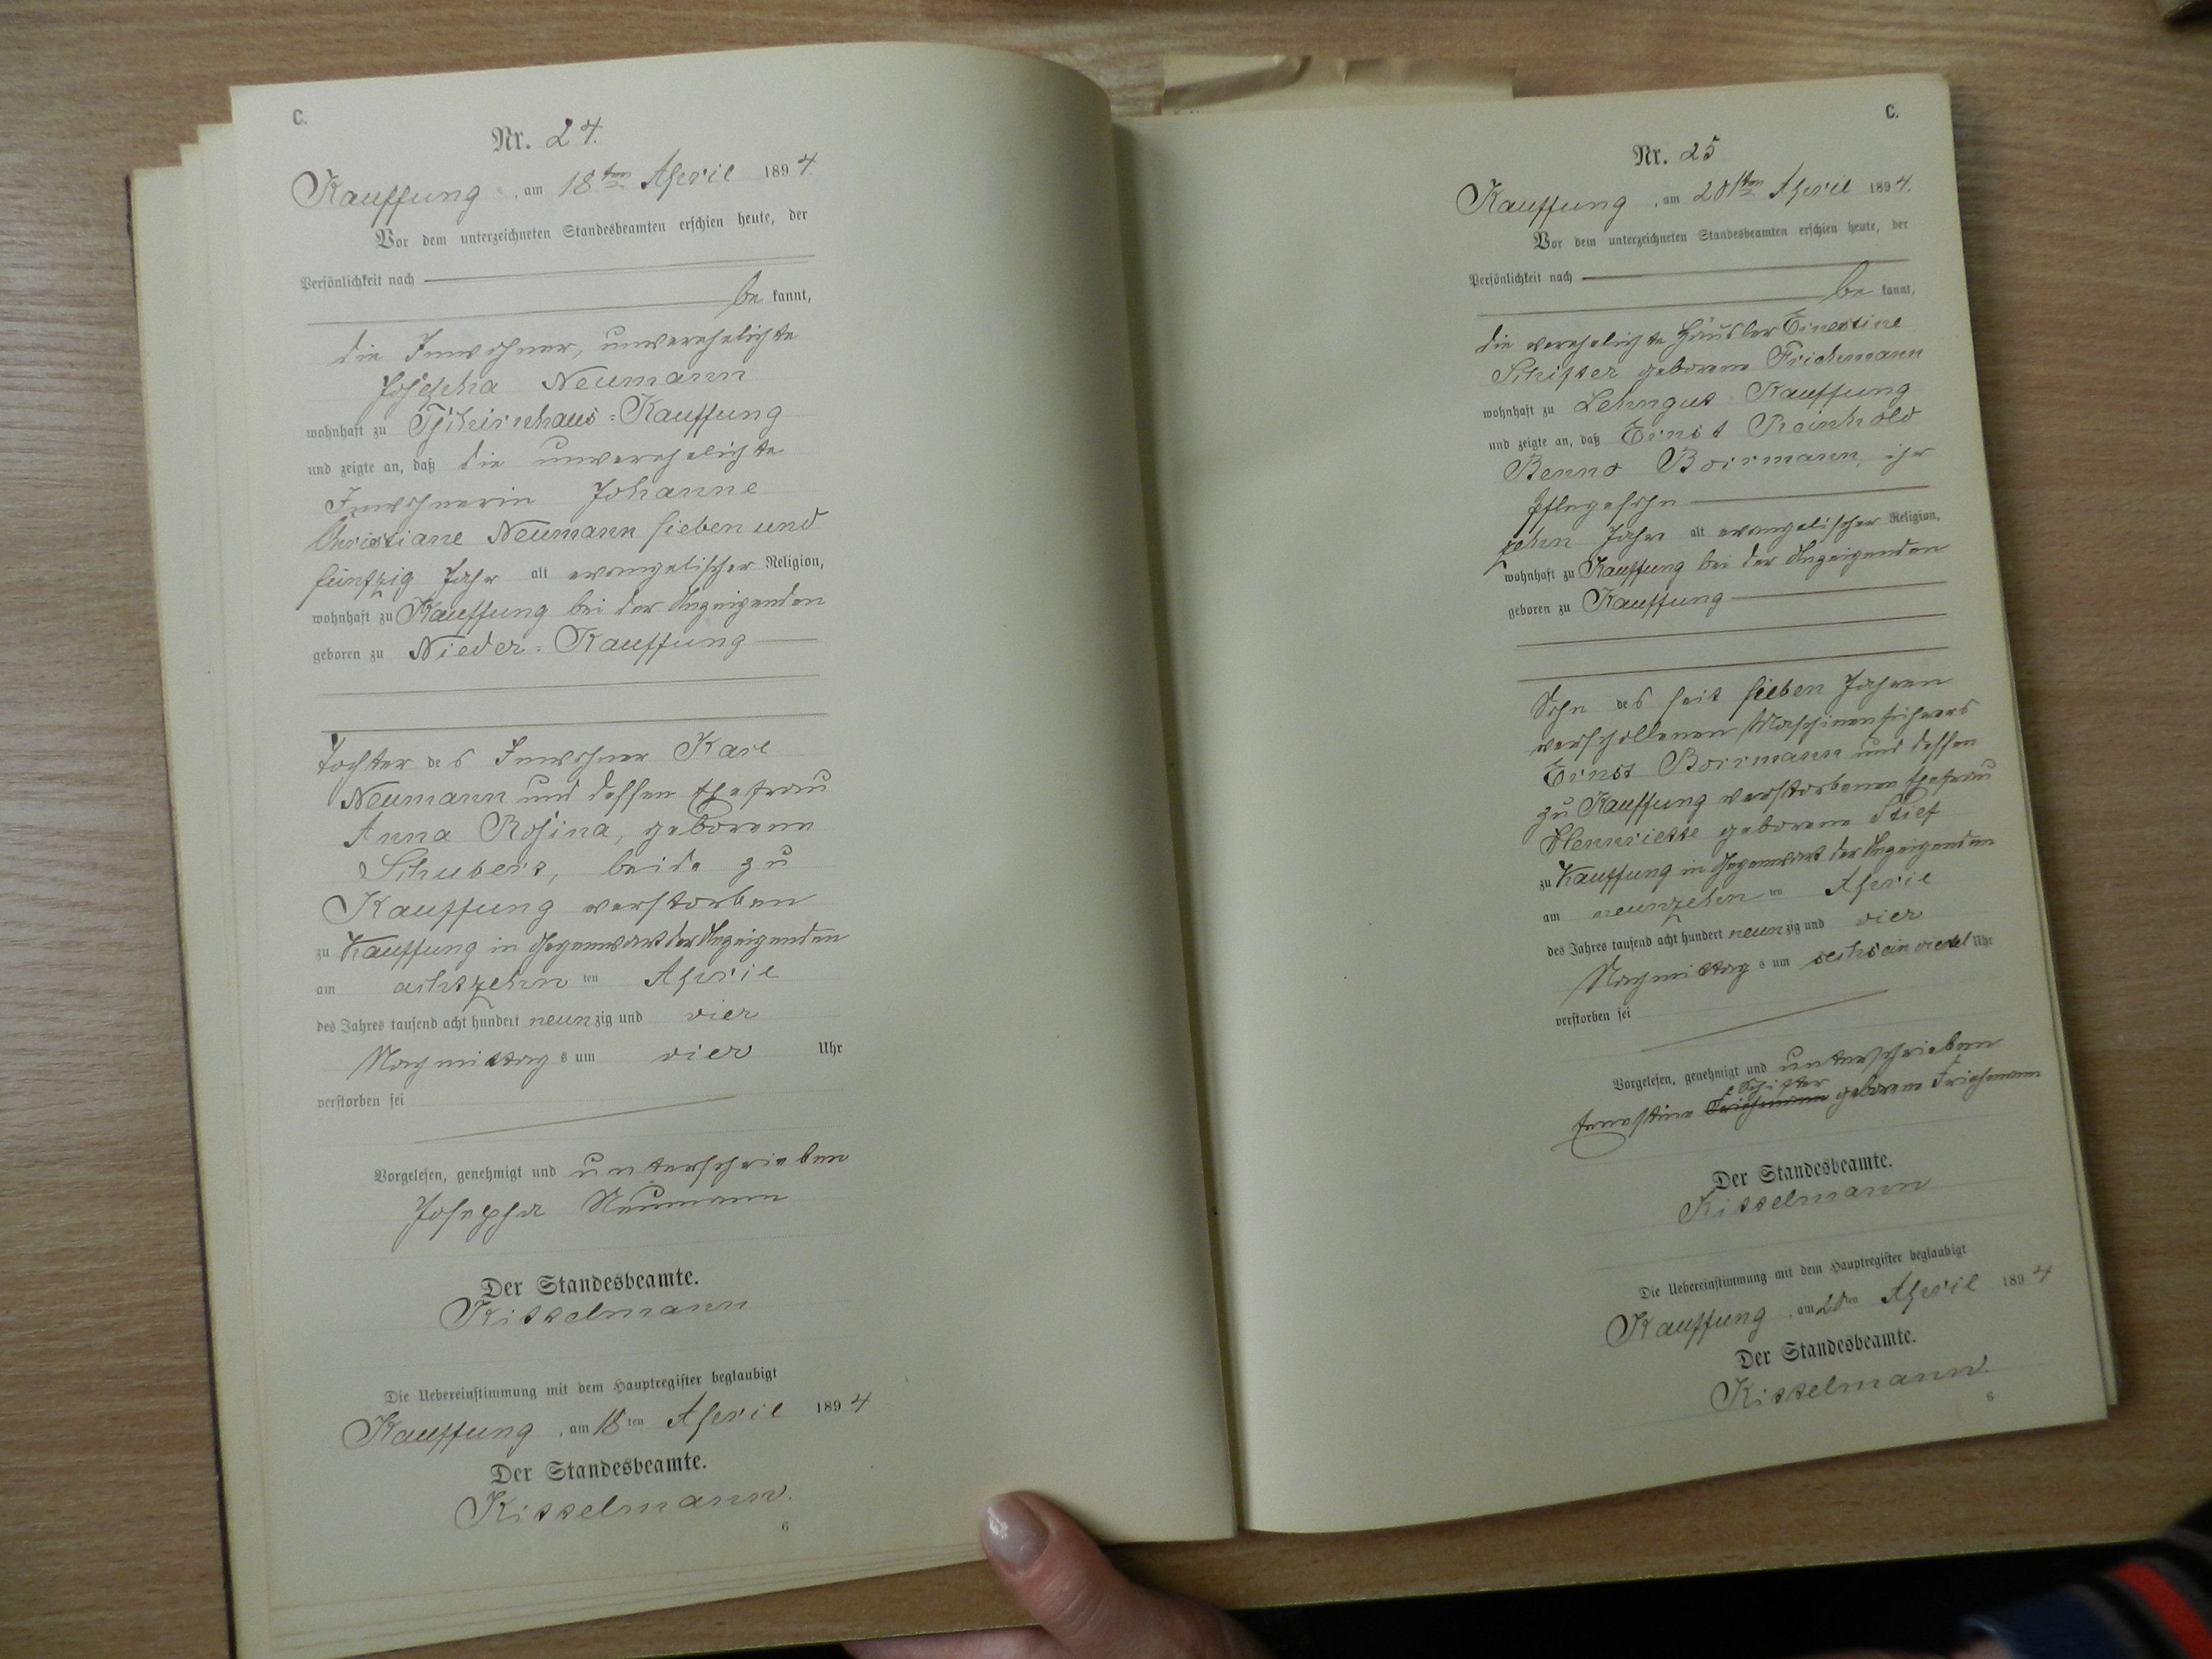 C.
Nr. 24.
Kauffung, am 18ten April 1894.
Vor dem unterzeichneten Standesbeamten erschien heute, der
Persönlichkeit nach
be kannt,
die Inwohner, unverehelichte
Josepha Neumann
wohnhaft zu Tschirnhaus-Kauffung
und zeigte an, daß die unverehelichte
Inwohnerin Johanne
Christiane Neumann sieben und
fünfzig Jahr alt evangelischer Religion,
wohnhaft zu Kauffung bei der Anzeigenden
geboren zu Nieder-Kauffung
Tochter des Inwohner Karl
Neumann und dessen Ehefrau
Anna Rosina, geborene
Schubert, beide zu
Kauffung verstorben
zu Kauffung in Gegenwart der Anzeigenden
am achtzehn ten April
des Jahres tausend acht hundert neunzig und vier
Nachmittag s um vier Uhr
verstorben sei
Vorgelesen, genehmigt und unterschrieben
Josepha Neumann
Der Standesbeamte.
Kittelmann
Die Uebereinstimmung mit dem Hauptregister beglaubigt
Kauffung, am 18ten April 1894
Der Standesbeamte.
Kittelmann.
6
C.
Nr. 25
Kauffung, am 20ten April 1894.
Vor dem unterzeichneten Standesbeamten erschien heute, der
Persönlichkeit nach
be kannt,
die verehelichte Häusler Ernestine
geborene Friehmann
wohnhaft zu Lehngut Kauffung
und zeigte an, daß Ernst Reinhold
Benno Boirmann, ihr
Pflegesohn
zehn Jahre alt evangelischer Religion,
wohnhaft zu Kauffung bei der Anzeigenden
geboren zu Kauffung
Sohn des seit sieben Jahren
verschollenen Maschinenführers
Ernst Boirmann und dessen
zu Kauffung verstorbenen Ehefrau
Henriette geborene Stief
zu Kauffung in Gegenwart der Anzeigenden
am neunzehn ten April
des Jahres tausend acht hundert neunzig und vier
Nachmittag s um sechseinviertel Uhr
verstorben sei
Vorgelesen, genehmigt und unterschrieben
Ernestine geborene Friehmann
Der Standesbeamte.
Kittelmann
Die Uebereinstimmung mit dem Hauptregister beglaubigt
Kauffung, am 20ten April 1894
Der Standesbeamte.
Kittelmann.
6